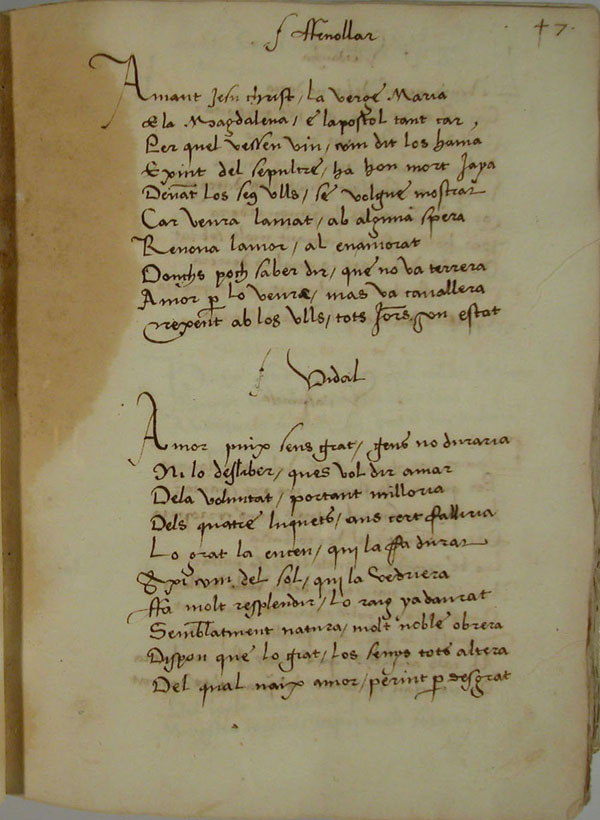 ffenollar
+ 7.
Amant Jesu christ / la verge Maria
E la Magdalena / e lapostol tant car,
Per quel vessen viu / com dit los hauia
Exint del sepulcre / ha hon mort Jaya
Deuāt los seus vlls / se volgue mostrar
Car veura lamat / ab alguna spera
Renoua lamor / al enamorat
Donchs poch saber dir / que no va terrera
Amor p lo veure / mas va cauallera
crexent ab los vlls / tots Jors son estat
Vidal
Amor puix sens grat / gens no duraria
Ni lo desliber / ques vol dir amar
Dela voluntat / portant milloria
Dels quatre luquets / ans cert ffalliria
Lo grat la encen / qui la ffa durar
Axi com del sol / qui la vedriera
ffa molt resplendir / lo raig ya daurat
Semblatment natura / molt noble obrera
Dispon que lo grat / los senys tots altera
Del qual naix amor / perint p desgrat